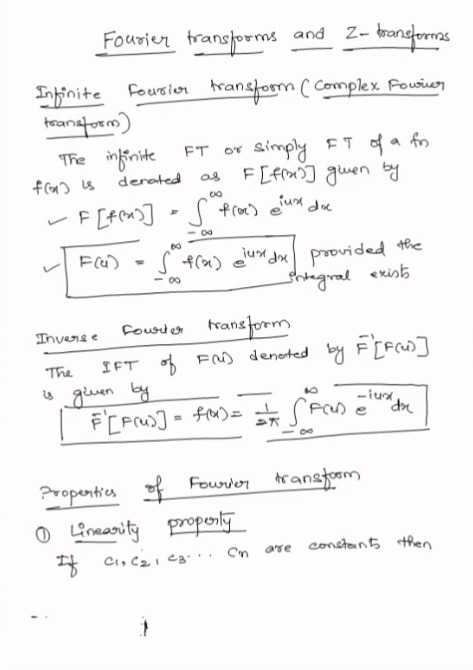 Fourier transforms and Z-transforms
Infinite Fourier transform (Complex Fourier
transform)
The infinite FT or simply FT of a fn
f(x) is denoted as F[f(x)] given by
✓ F[f(x)] = ∫_{-∞}^{∞} f(x) e^{iux} dx
✓ F(u) = ∫_{-∞}^{∞} f(x) e^{iux} dx provided the
integral exists
Inverse Fourier transform
The IFT of F(u) denoted by F^{-1}[F(u)]
is given by
F^{-1}[F(u)] = f(x) = 1/2π ∫_{-∞}^{∞} F(u) e^{-iux} dx
Properties of Fourier transform
① Linearity property
If c1, c2, c3... cn are constants then